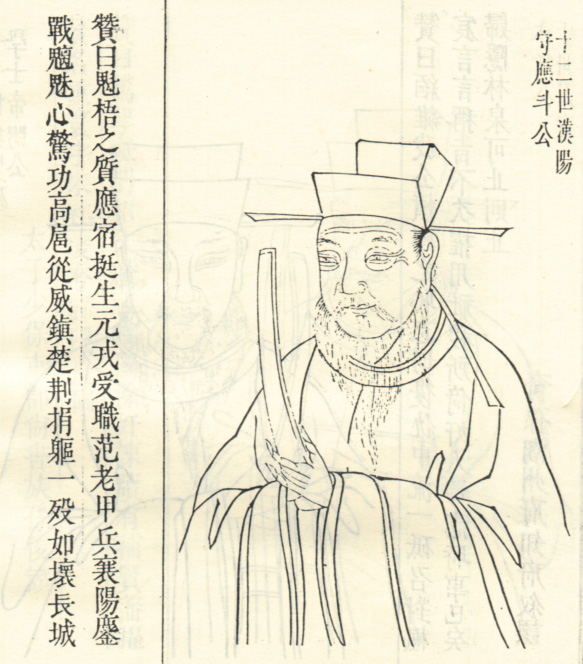 十二世漢陽
守應斗公
贊曰魁梧之質應宿挺生元戎受職范老甲兵襄陽鏖
戰魍魅心驚功高扈從威鎮楚荆捐軀一殁如壞長城